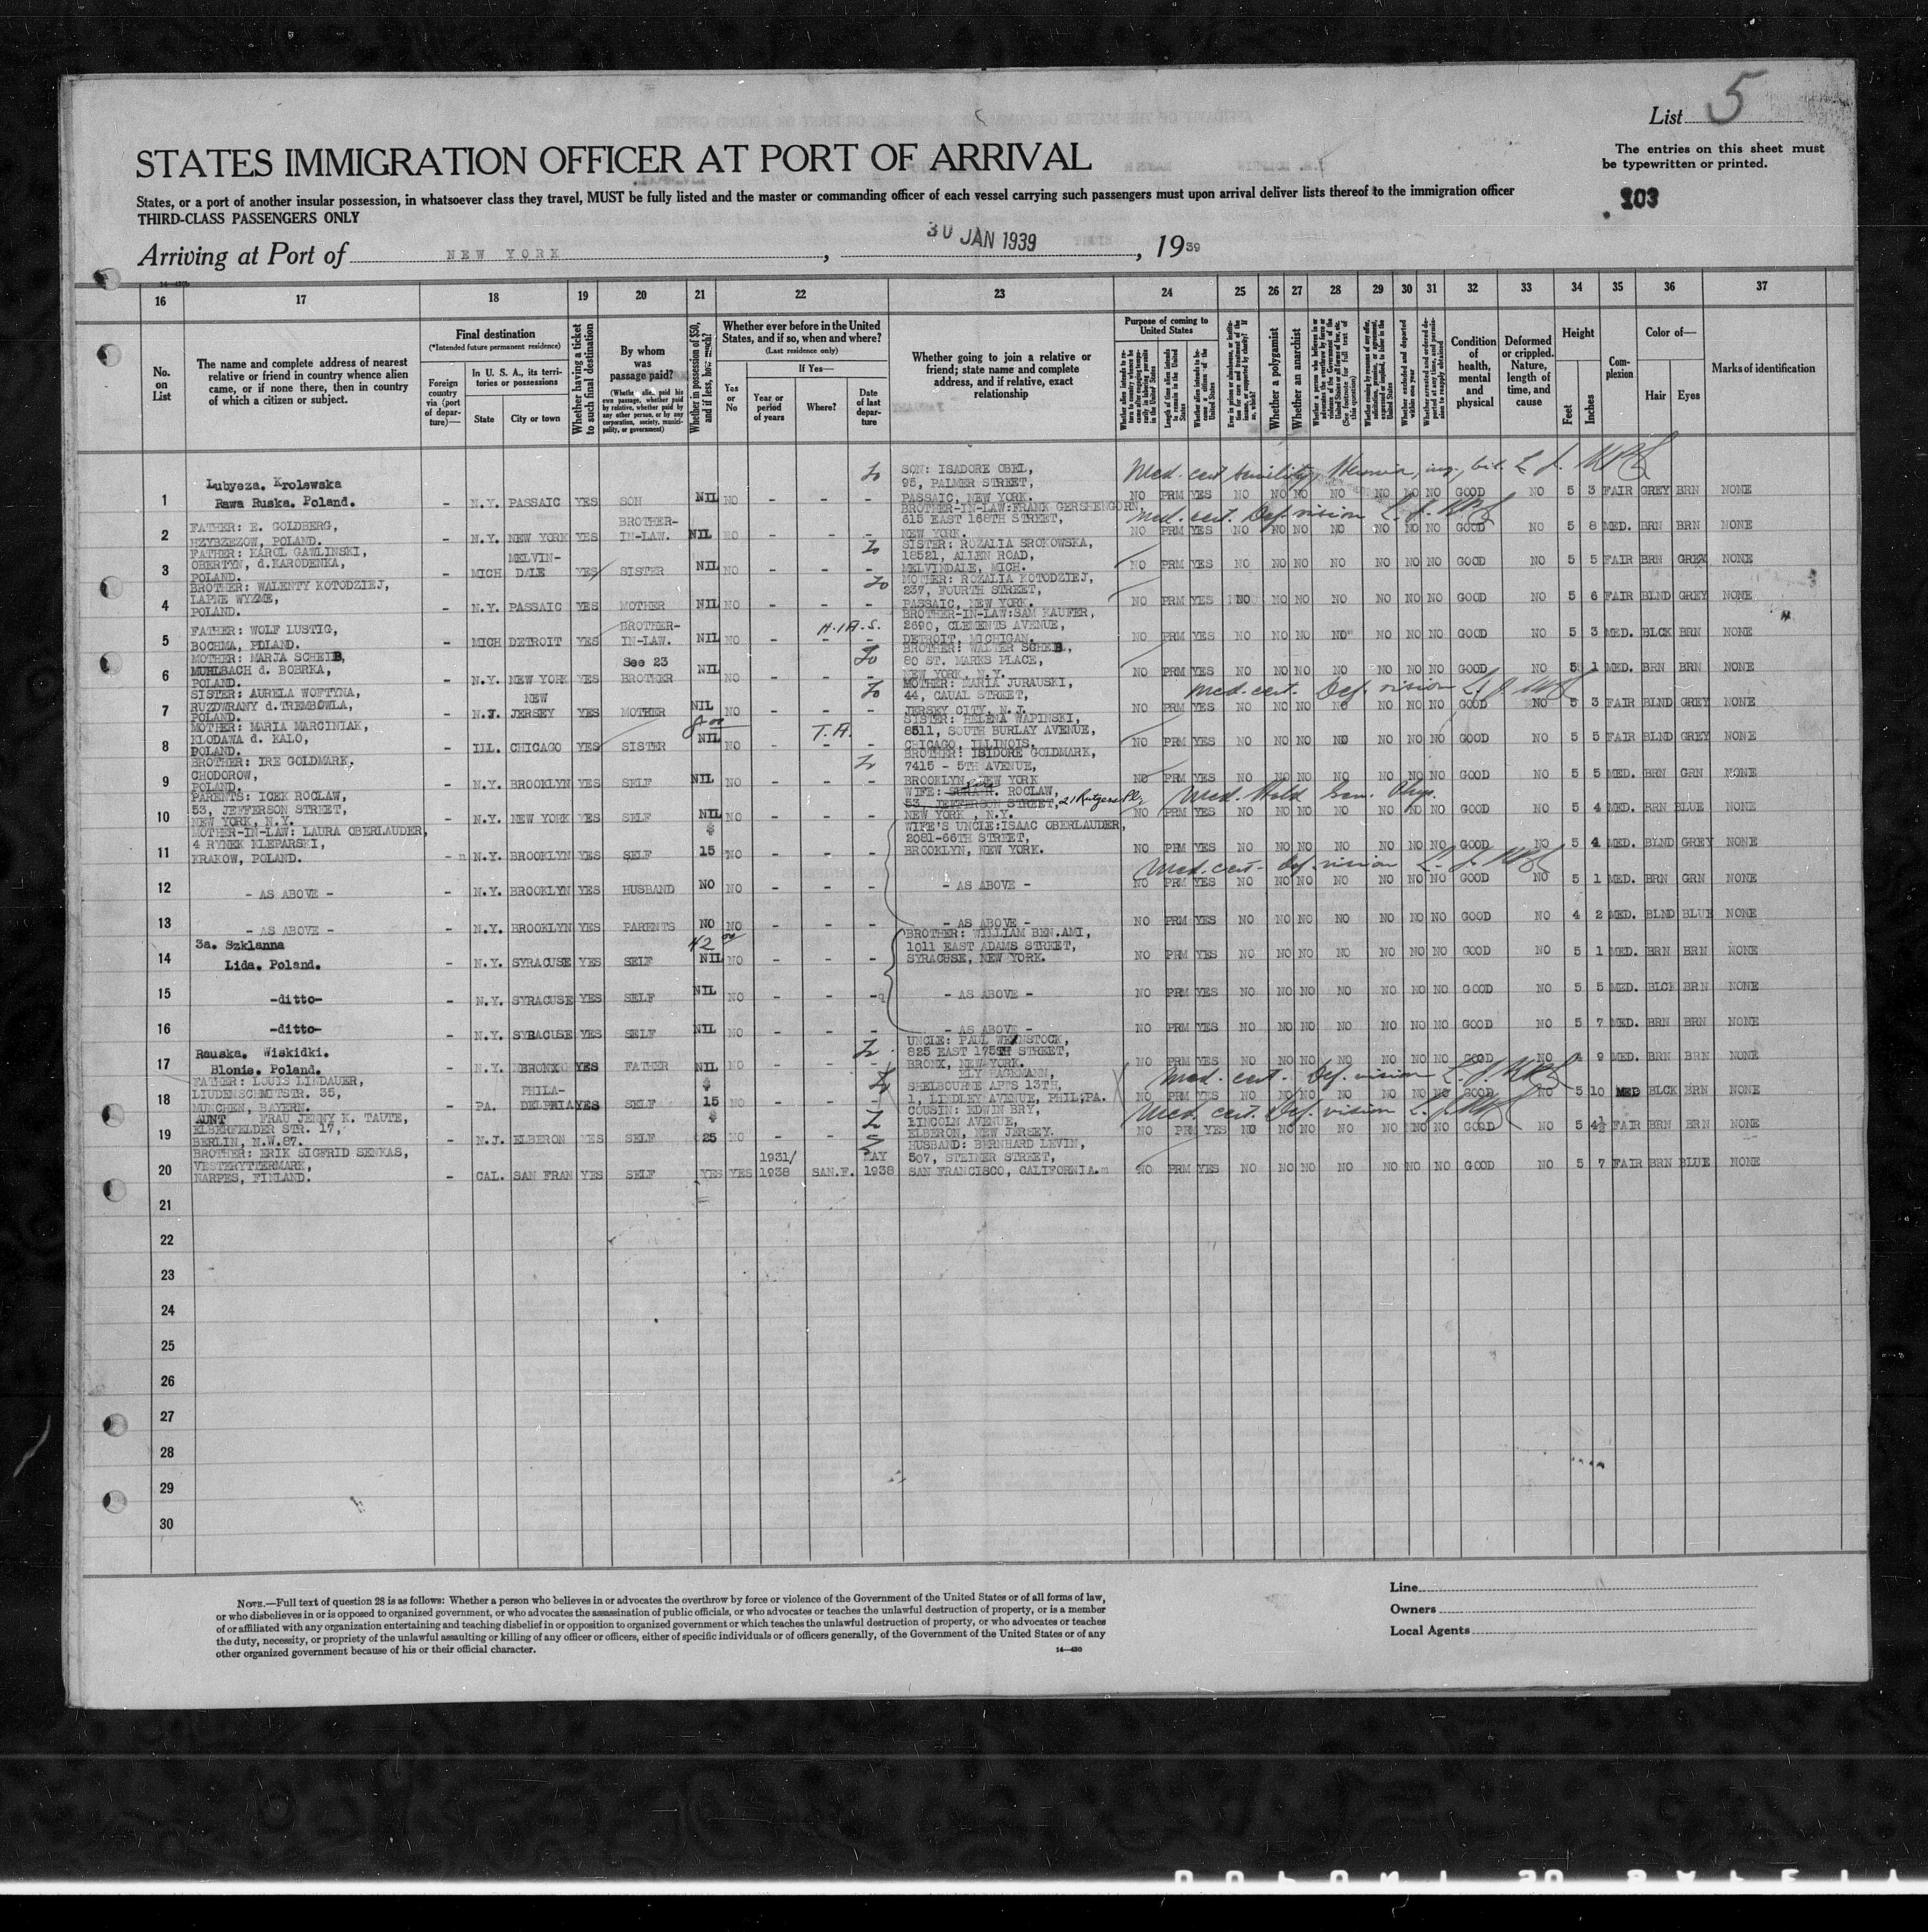 List 5
STATES IMMIGRATION OFFICER AT PORT OF ARRIVAL
The entries on this sheet must
be typewritten or printed.
States, or a port of another insular possession, in whatsoever class they travel, MUST be fully listed and the master or commanding officer of each vessel carrying such passengers must upon arrival deliver lists thereof to the immigration officer
THIRD-CLASS PASSENGERS ONLY
103
Arriving at Port of NEW YORK, 30 JAN 1939, 1939
16 17 18 19 20 21 22 23 24 25 26 27 28 29 30 31 32 33 34 35 36 37
No. on List
The name and complete address of nearest relative or friend in country whence alien came, or if none there, then in country of which a citizen or subject.
Final destination
(*Intended future permanent residence)
Foreign country via (port of departure)—
In U. S. A., its territories or possessions
State
City or town
Whether having a ticket to such final destination
By whom was passage paid?
Whether in possession of $50, and if less, how much?
Whether ever before in the United States, and if so, when and where?
(Last residence only)
Yes or No
If Yes—
Year or period of years
Where?
Date of last departure
Whether going to join a relative or friend; state name and complete address, and if relative, exact relationship
Purpose of coming to United States
Whether a polygamist
Whether an anarchist
Condition of health, mental and physical
Deformed or crippled. Nature, length of time, and cause
Height
Feet
Inches
Complexion
Color of—
Hair
Eyes
Marks of identification
1 Lubyeza. Krolewska Rawa Ruska. Poland. – N.Y. PASSAIC YES SON NIL NO – – – SON: ISADORE OBEL, 95, PALMER STREET, PASSAIC, NEW YORK. NO PRM YES NO NO NO NO NO NO NO GOOD NO 5 3 FAIR GREY BRN NONE
Med. cert. Senility
2 FATHER: E. GOLDBERG, HZYBZEZOW, POLAND. – N.Y. NEW YORK YES BROTHER-IN-LAW. NIL NO – – – BROTHER-IN-LAW:FRANK GERSHENGORN, 615 EAST 168TH STREET, NEW YORK. NO PRM YES NO NO NO NO NO NO NO GOOD NO 5 8 MED. BRN BRN NONE
Med. cert. Def. vision
3 FATHER: KAROL GAWLINSKI, OBERTYN, d.KARODENKA, POLAND. – MICH MELVIN-DALE YES SISTER NIL NO – – – SISTER: ROZALIA SROKOWSKA, 18521, ALLEN ROAD, MELVINDALE, MICH. NO PRM YES NO NO NO NO NO NO NO GOOD NO 5 5 FAIR BRN GREY NONE
4 BROTHER: WALENTY KOTODZIEJ, LAPNE WYZME, POLAND. – N.Y. PASSAIC YES MOTHER NIL NO – – – MOTHER: ROZALIA KOTODZIEJ, 237, FOURTH STREET, PASSAIC, NEW YORK. NO PRM YES NO NO NO NO NO NO NO GOOD NO 5 6 FAIR BLND GREY NONE
5 FATHER: WOLF LUSTIG, BOCHMA, POLAND. – MICH DETROIT YES BROTHER-IN-LAW. NIL NO – H.I.A.S. – – BROTHER-IN-LAW:SAM KAUFER, 2690, CLEMENTS AVENUE, DETROIT, MICHIGAN. NO PRM YES NO NO NO NO NO NO NO GOOD NO 5 3 MED. BLCK BRN NONE
6 MOTHER: MARJA SCHEIB, MUHLBACH d. BOBRKA, POLAND. – N.Y. NEW YORK YES See 23 BROTHER NIL NO – – – BROTHER: WALTER SCHEIB, 80 ST. MARKS PLACE, NEW YORK, N.Y. NO PRM YES NO NO NO NO NO NO NO GOOD NO 5 1 MED. BRN BRN NONE
7 SISTER: AURELA WOFTYNA, RUZDWRANY d.TREMBOWLA, POLAND. – N.J. NEW JERSEY YES MOTHER NIL NO – – – MOTHER: MARIA JURAUSKI, 44, CAUAL STREET, JERSEY CITY, N. J. NO PRM YES NO NO NO NO NO NO NO GOOD NO 5 3 FAIR BLND GREY NONE
Med. cert. Def. vision
8 MOTHER: MARIA MARCINIAK, KLODAWA d. KALO, POLAND. – ILL. CHICAGO YES SISTER 8.00 NIL NO – T.A. – – SISTER: HELENA WAPINSKI, 8511, SOUTH BURLAY AVENUE, CHICAGO, ILLINOIS. NO PRM YES NO NO NO NO NO NO NO GOOD NO 5 5 FAIR BLND GREY NONE
9 BROTHER: IRE GOLDMARK, CHODOROW, POLAND. – N.Y. BROOKLYN YES SELF NIL NO – – – BROTHER: ISIDORE GOLDMARK, 7415 – 5TH AVENUE, BROOKLYN, NEW YORK NO PRM YES NO NO NO NO NO NO NO GOOD NO 5 5 MED. BRN GRN NONE
10 PARENTS: ICEK ROCLAW, 53, JEFFERSON STREET, NEW YORK, N.Y. – N.Y. NEW YORK YES SELF NIL NO – – – WIFE: ROCLAW, 53, JEFFERSON STREET, 21 Rutgers Pl. NEW YORK, N.Y. NO PRM YES NO NO NO NO NO NO NO GOOD NO 5 4 MED. BRN BLUE NONE
Med. Hold
11 MOTHER-IN-LAW: LAURA OBERLAUDER, 4 RYNEK KLEPARSKI, KRAKOW, POLAND. – N.Y. BROOKLYN YES SELF $ 15 NO – – – WIFE'S UNCLE:ISAAC OBERLAUDER, 2081-66TH STREET, BROOKLYN, NEW YORK. NO PRM YES NO NO NO NO NO NO NO GOOD NO 5 4 MED. BLND GREY NONE
12 – AS ABOVE – – N.Y. BROOKLYN YES HUSBAND NO NO – – – – AS ABOVE – NO PRM YES NO NO NO NO NO NO NO GOOD NO 5 1 MED. BRN GRN NONE
Med. cert. Def. vision
13 – AS ABOVE – – N.Y. BROOKLYN YES PARENTS NO NO – – – – AS ABOVE – NO PRM YES NO NO NO NO NO NO NO GOOD NO 4 2 MED. BLND BLUE NONE
14 3a. Szklanna Lida. Poland. – N.Y. SYRACUSE YES SELF 42.00 NIL NO – – – BROTHER: WILLIAM BEN.AMI, 1011 EAST ADAMS STREET, SYRACUSE, NEW YORK. NO PRM YES NO NO NO NO NO NO NO GOOD NO 5 1 MED. BRN BRN NONE
15 -ditto- – N.Y. SYRACUSE YES SELF NIL NO – – – – AS ABOVE – NO PRM YES NO NO NO NO NO NO NO GOOD NO 5 5 MED. BLCK BRN NONE
16 -ditto- – N.Y. SYRACUSE YES SELF NIL NO – – – – AS ABOVE – NO PRM YES NO NO NO NO NO NO NO GOOD NO 5 7 MED. BRN BRN NONE
17 Rauska. Wiskidki. Blonie. Poland. – N.Y. BRONX YES FATHER NIL NO – – – UNCLE: PAUL 825 EAST 175TH STREET, BRONX, NEW YORK. NO PRM YES NO NO NO NO NO NO NO GOOD NO 9 MED. BRN BRN NONE
18 FATHER: LOUIS LINDAUER, LIUDENSCHMITSTR. 35, MUNCHEN, BAYERN. – PA. PHILA-DELPHIA YES SELF $ 15 NO – – – ELY PACKMANN, SHELBOURNE APTS 13TH, 1, LINDLEY AVENUE, PHIL;PA. NO PRM YES NO NO NO NO NO NO NO GOOD NO 5 10 MED BLCK BRN NONE
Med. cert. Def. vision
19 AUNT FRAU JENNY K. TAUTE, ELBERFELDER STR. 17, BERLIN, N.W.87. – N.J. ELBERON YES SELF $ 25 NO – – – COUSIN: EDWIN BRY, LINCOLN AVENUE, ELBERON, NEW JERSEY. NO PRM YES NO NO NO NO NO NO NO GOOD NO 5 4½ FAIR BRN BRN NONE
Med. cert. Def. vision
20 BROTHER: ERIK SIGFRID SENKAS, VESTERYTTERMARK, NARPES, FINLAND. – CAL. SAN FRAN YES SELF YES YES 1931/1938 SAN.F. MAY 1938 HUSBAND: BERNHARD LEVIN, 507, STEINER STREET, SAN FRANCISCO, CALIFORNIA. NO PRM YES NO NO NO NO NO NO NO GOOD NO 5 7 FAIR BRN BLUE NONE
21
22
23
24
25
26
27
28
29
30
NOTE.—Full text of question 28 is as follows: Whether a person who believes in or advocates the overthrow by force or violence of the Government of the United States or of all forms of law,
or who disbelieves in or is opposed to organized government, or who advocates the assassination of public officials, or who advocates or teaches the unlawful destruction of property, or is a member
of or affiliated with any organization entertaining and teaching disbelief in or opposition to organized government or which teaches the unlawful destruction of property, or who advocates or teaches
the duty, necessity, or propriety of the unlawful assaulting or killing of any officer or officers, either of specific individuals or of officers generally, of the Government of the United States or of any
other organized government because of his or their official character.
14—430
Line
Owners
Local Agents